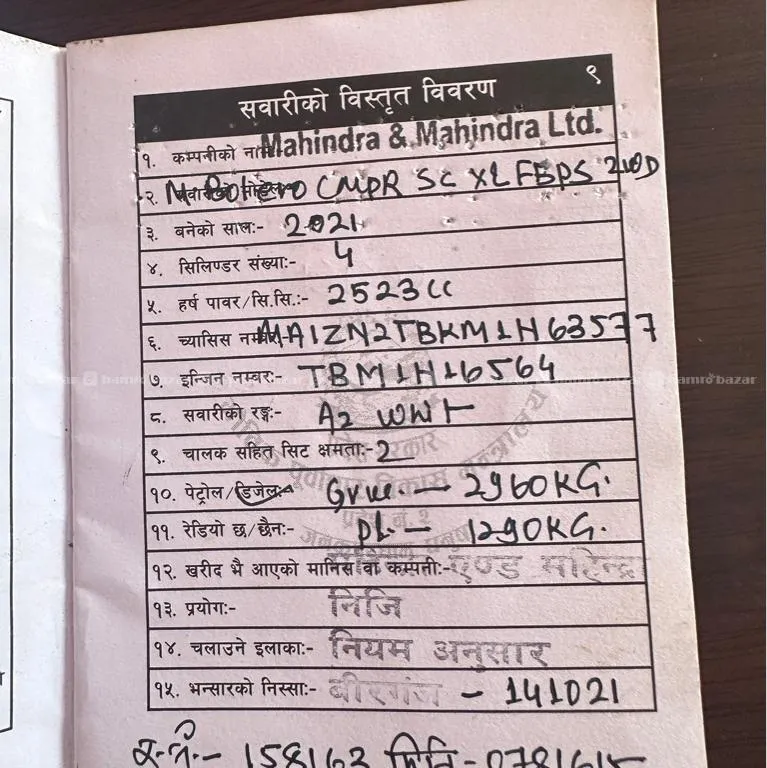 सवारीको विस्तृत विवरण ९
१. कम्पनीको नाम Mahindra & Mahindra Ltd.
२. M. Bolero CMPR SC XL FBPS 2WD
३. बनेको सालः- 2021
४. सिलिण्डर संख्याः- 4
५. हर्ष पावर/सि.सि.:- 2523CC
६. च्यासिस नम्बर MA1ZN2TBKM1H63577
७. इन्जिन नम्बरः- TBM1H16564
८. सवारीको रङ्गः- A2 WWT
९. चालक सहित सिट क्षमताः- 2
१०. पेट्रोल/डिजेलः- Gvw. — 2960KG.
११. रेडियो छ/छैनः- PL. — 1290KG.
१२. खरीद भै आएको मानिस वा कम्पनीः- एण्ड महिन्द्रा
१३. प्रयोगः- निजि
१४. चलाउने इलाकाः- नियम अनुसार
१५. भन्सारको निस्साः- बीरगंज - 141021
158163 मिति-
hamrobazar